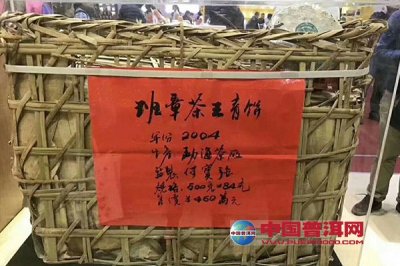 班章茶王青饼
年份 2004
生产 勐海茶厂
监制 付宝强
规格:500克*84元
售价 ¥460万元
中国普洱网